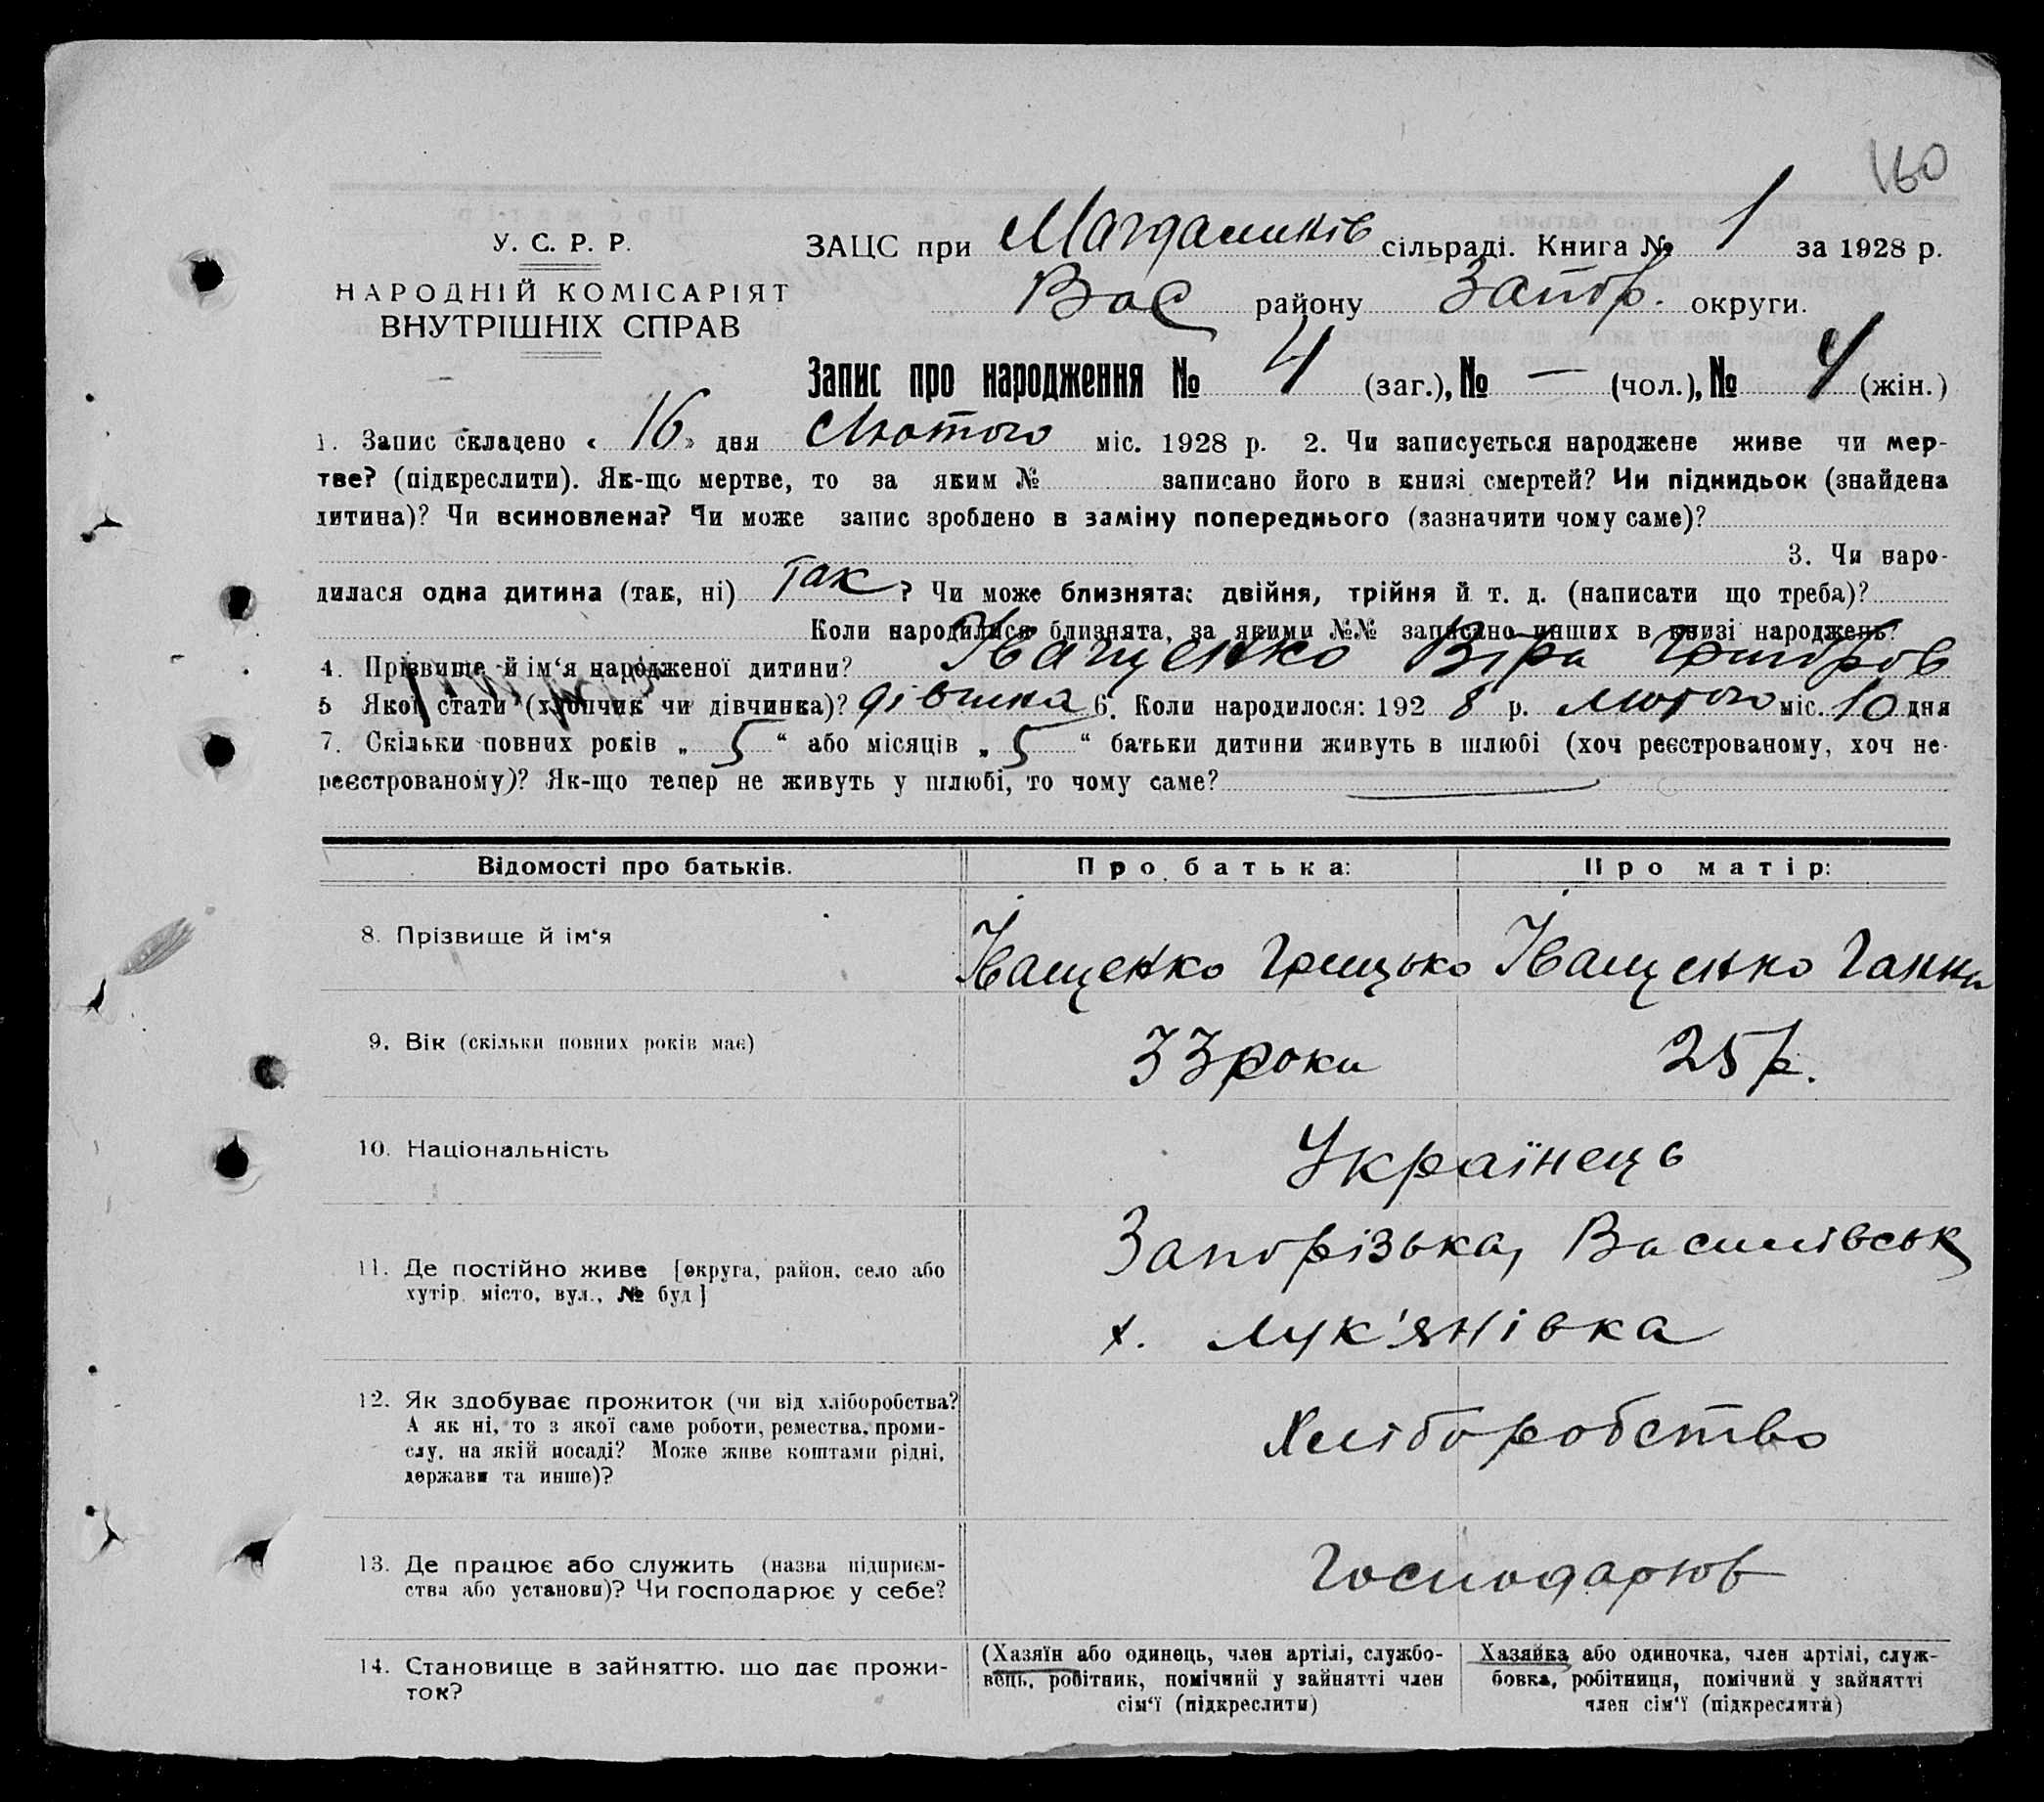 160
У. С. Р. Р.
НАРОДНІЙ КОМІСАРІЯТ
ВНУТРІШНІХ СПРАВ
ЗАЦС при Магдалинків сільраді. Книга № 1 за 1928 р.
Вас району Запор. округи.
Запис про народження № 4 (заг.), № — (чол.), № 4 (жін.)
1. Запис складено « 16 » дня Лютого міс. 1928 р. 2. Чи записується народжене живе чи мер-
тве? (підкреслити). Як-що мертве, то за яким № записано його в книзі смертей? Чи підкидьок (знайдена
дитина)? Чи всиновлена? Чи може запис зроблено в заміну попереднього (зазначити чому саме)?
3. Чи наро-
дилася одна дитина (так, ні) Так ? Чи може близнята: двійня, трійня й т. д. (написати що треба)?
Коли народилися близнята, за якими №№ записано инших в книзі народжень?
4. Прізвище й ім‘я народженої дитини? Іващенко Віра Григоров
5 Якої стати (хлопчик чи дівчинка)? дівчина 6. Коли народилося: 192 8 р. лютого міс. 10 дня
7. Скільки повних років „ 5 “ або місяців „ 5 “ батьки дитини живуть в шлюбі (хоч реєстрованому, хоч не-
реєстрованому)? Як-що тепер не живуть у шлюбі, то чому саме?
Відомості про батьків. Про батька: Про матір:
8. Прізвище й ім‘я Іващенко Грицько Іващенко Ганна
9. Вік (скільки повних років має) 33 роки 25 р.
10. Національність Українець
11. Де постійно живе [округа, район, село або
хутір, місто, вул., № буд]
Запорізька, Василівськ
х. Лук'янівка
12. Як здобуває прожиток (чи від хліборобства?
А як ні, то з якої саме роботи, ремества, проми-
слу, на якій посаді? Може живе коштами рідні,
держави та инше)?
Хліборобство
13. Де працює або служить (назва підприєм-
ства або установи)? Чи господарює у себе?
Господарюв
14. Становище в зайняттю, що дає прожи-
ток?
(Хазяїн або одинець, член артілі, службо-
вець, робітник, помічний у зайнятті член
сім‘ї (підкреслити)
Хазяйка або одиночка, член артілі, служ-
бовка, робітниця, помічний у зайнятті
член сім‘ї (підкреслити)